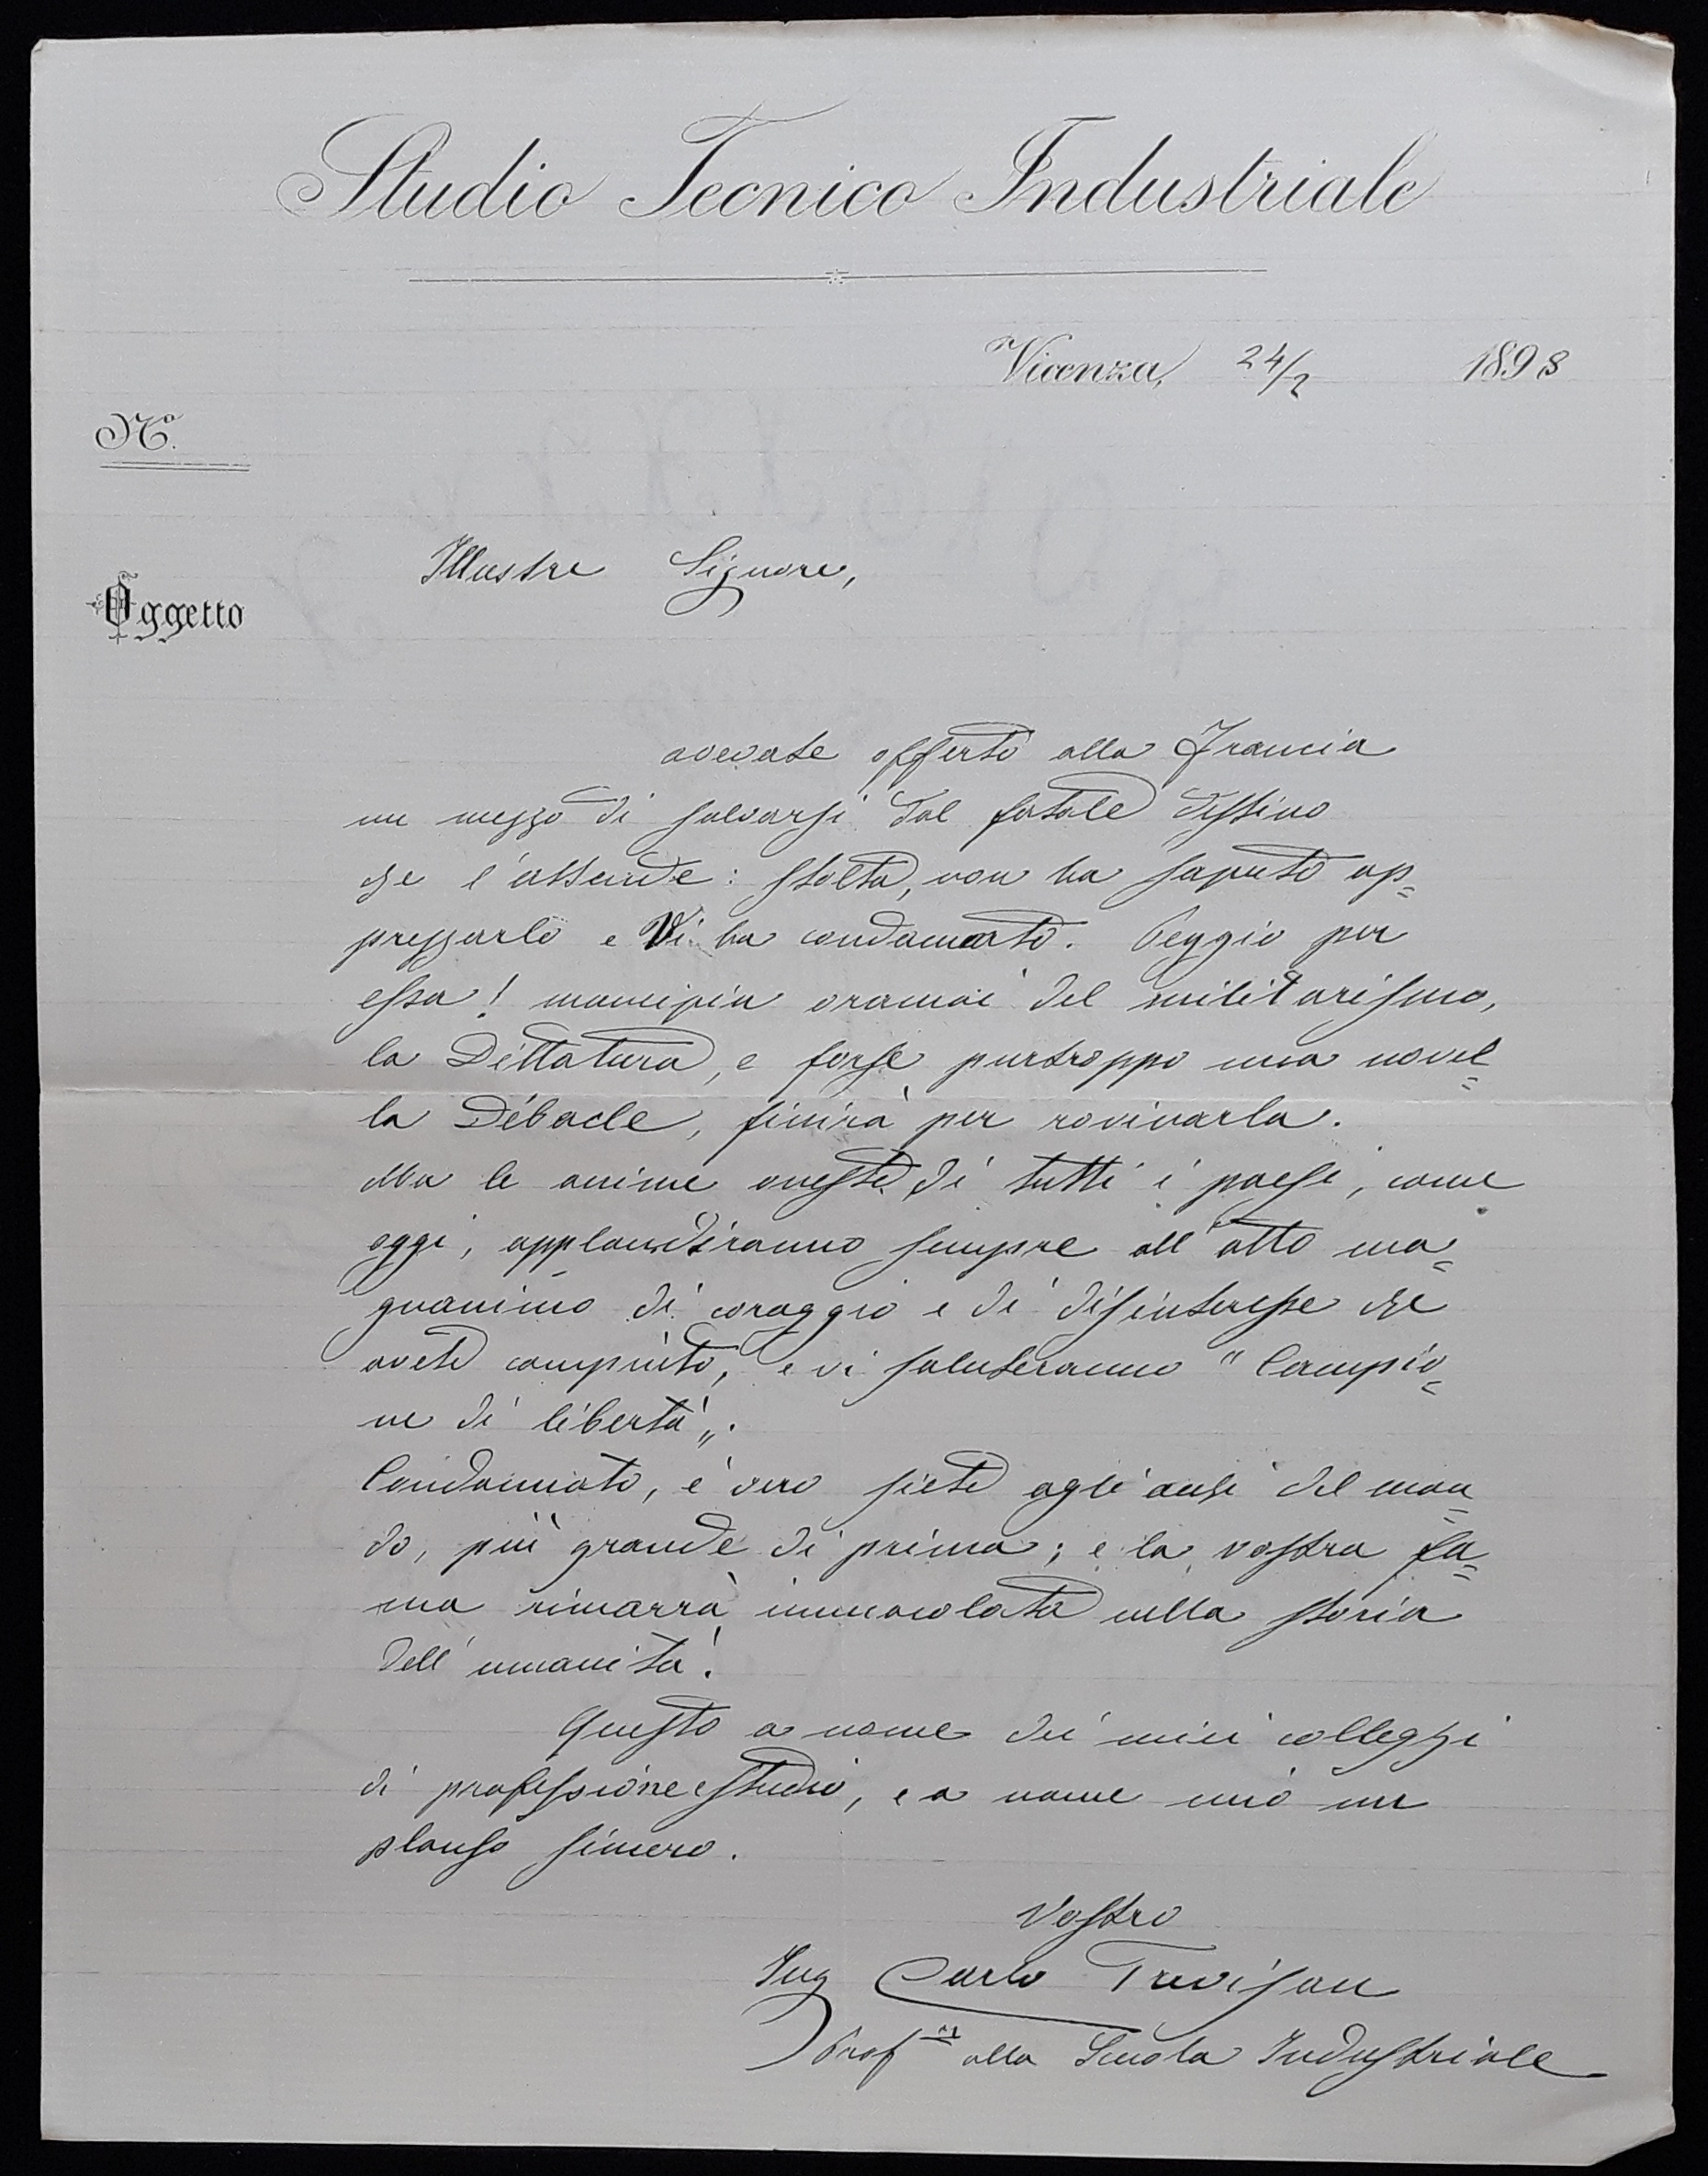 Studio Tecnico Industriale
Vicenza, 24/2 1898
N.o
Oggetto
Illustre Signore,
avevate offerto alla Francia
un mezzo di salvarsi dal fatale destino
che l'attende: stolta, non ha saputo ap=
prezzarlo e Vi ha condannato. Peggio per
essa! mancipia oramai del militarismo,
la Dittatura, e forse purtroppo una novel=
la Débacle, finirà per rovinarla.
Ma le anime oneste di tutti i paesi, come
oggi, applaudiranno sempre all'atto ma=
gnanimo di coraggio e di disinteresse che
avete compiuto, e vi saluteranno "Campio=
ne di libertà„.
Condannato, è vero siete agli occhi del mon=
do, più grande di prima; e la vostra fa=
ma rimarrà immacolata nella storia
dell'umanità!
Questo a nome dei miei colleghi
di professione e studio, e a nome mio un
plauso sincero.
Vostro
Ing Carlo Trevisan
Prof.re alla Scuola Industriale